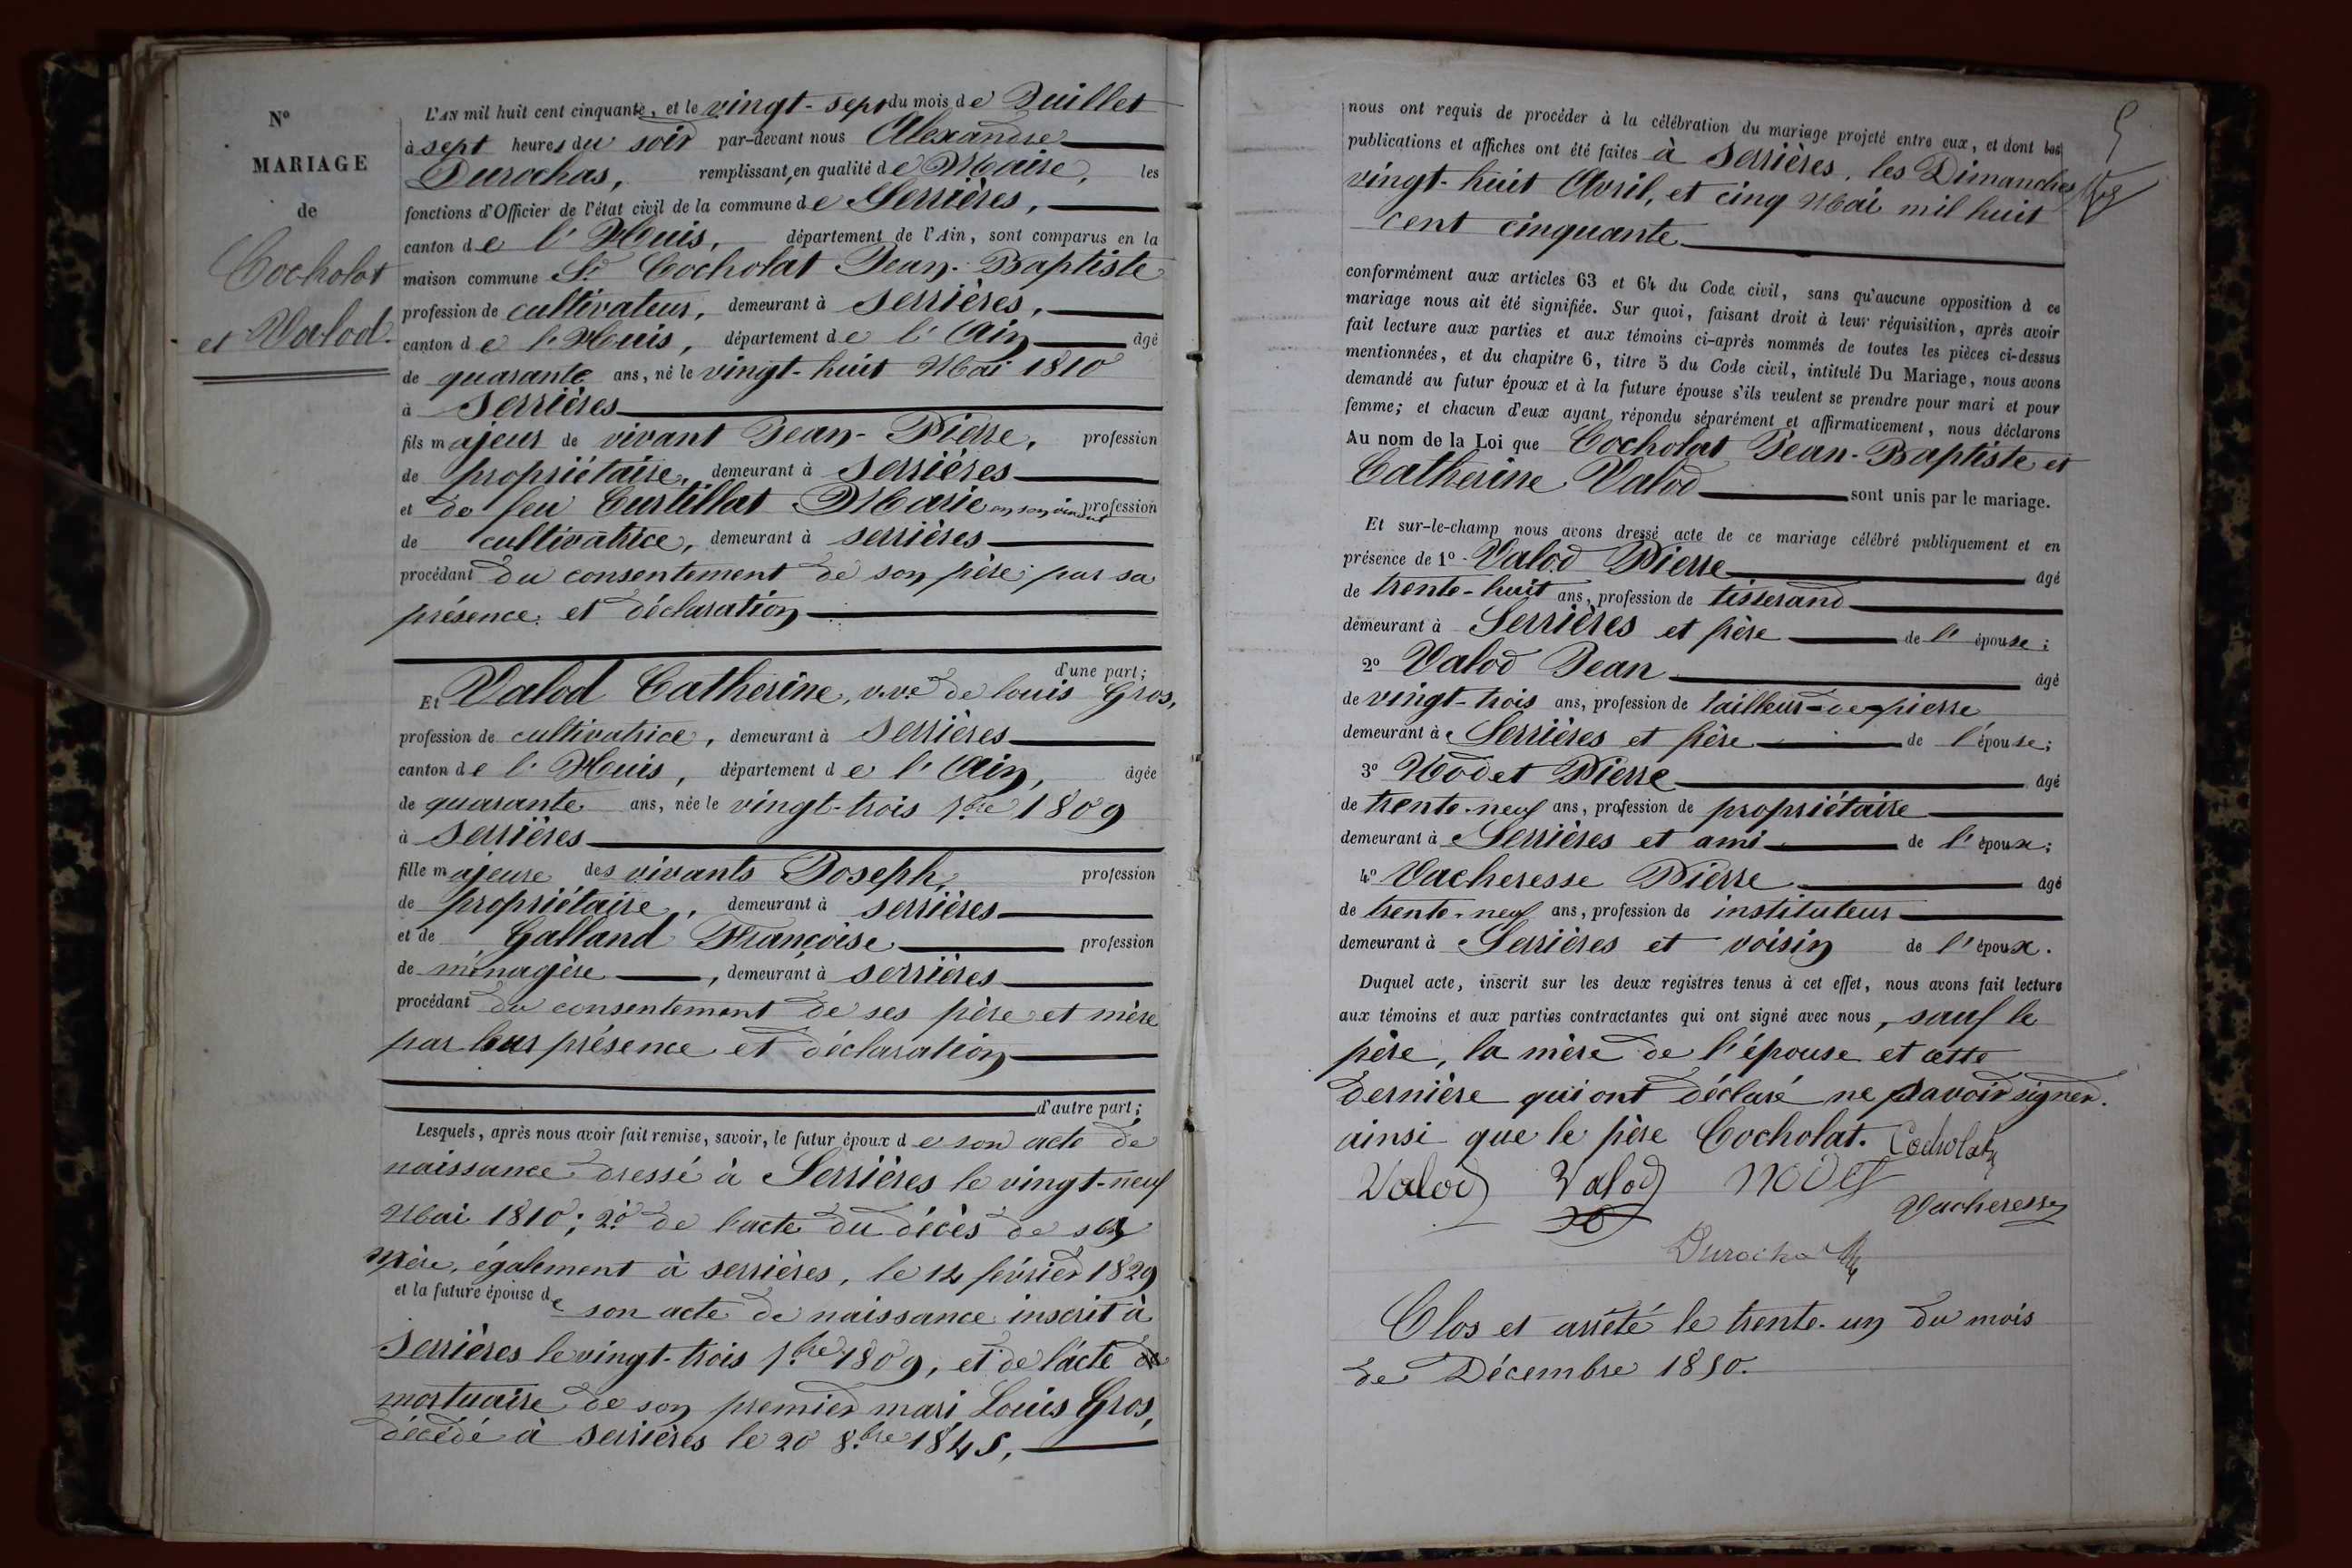 N°
MARIAGE
de
Cocholat
et Valod.
L'AN mil huit cent cinquante, et le vingt-sept du mois de Juillet
à sept heures du soir par-devant nous Alexandre
Durochas, remplissant, en qualité de Maire, les
fonctions d'Officier de l'état civil de la commune de Serrières,
canton de l'Huis, département de l'Ain, sont comparus en la
maison commune Sr Cocholat Jean-Baptiste
profession de cultivateur, demeurant à Serrières,
canton de l'Huis, département de l'Ain âgé
de quarante ans, né le vingt-huit Mai 1810
à Serrières
fils majeur de vivant Jean-Pierre, profession
de propriétaire, demeurant à Serrières
et de feu Curtillat Marie en son vivant profession
de cultivatrice, demeurant à serrières
procédant du consentement de son père par sa
présence et déclaration
d'une part;
Et Valod Catherine, v.ve de louis Gros,
profession de cultivatrice, demeurant à Serrières
canton de l'Huis, département de l'Ain, âgée
de quarante ans, née le vingt-trois 7.bre 1809
à Serrières
fille majeure des vivants Joseph, profession
de propriétaire, demeurant à serrières
et de Galland Françoise profession
de ménagère, demeurant à serrières
procédant du consentement de ses père et mère
par leur présence et déclaration
d'autre part;
Lesquels, après nous avoir fait remise, savoir, le futur époux de son acte de
naissance dressé à Serrières le vingt-neuf
Mai 1810; 2° de l'acte du décès de sa
mère, également à serrières, le 14 février 1829
et la future épouse de son acte de naissance inscrit à
Serrières le vingt-trois 7.bre 1809, et de l'acte
mortuaire de son premier mari Louis Gros,
décédé à serrières le 20 8.bre 1845,
nous ont requis de procéder à la célébration du mariage projeté entre eux, et dont les 5
publications et affiches ont été faites à Serrières, les Dimanches
vingt-huit Avril, et cinq Mai mil huit
cent cinquante
conformément aux articles 63 et 64 du Code civil, sans qu'aucune opposition à ce
mariage nous ait été signifiée. Sur quoi, faisant droit à leur réquisition, après avoir
fait lecture aux parties et aux témoins ci-après nommés de toutes les pièces ci-dessus
mentionnées, et du chapitre 6, titre 5 du Code civil, intitulé Du Mariage, nous avons
demandé au futur époux et à la future épouse s'ils veulent se prendre pour mari et pour
femme; et chacun d'eux ayant répondu séparément et affirmativement, nous déclarons
Au nom de la Loi que Cocholat Jean-Baptiste et
Catherine Valod sont unis par le mariage.
Et sur-le-champ nous avons dressé acte de ce mariage célébré publiquement et en
présence de 1° Valod Pierre âgé
de trente-huit ans, profession de tisserand
demeurant à Serrières et frère de l'épouse;
2° Valod Jean âgé
de vingt-trois ans, profession de tailleur-de-pierre
demeurant à Serrières et frère de l'épouse;
3° Nodet Pierre âgé
de trente-neuf ans, profession de propriétaire
demeurant à Serrières et ami de l'époux;
4° Vacheresse Pierre âgé
de trente-neuf ans, profession de instituteur
demeurant à Serrières et voisin de l'époux.
Duquel acte, inscrit sur les deux registres tenus à cet effet, nous avons fait lecture
aux témoins et aux parties contractantes qui ont signé avec nous, sauf le
père, la mère de l'épouse et cette
dernière qui ont déclaré ne savoir signer.
ainsi que le père Cocholat. Cocholat
Valod Valod Nodet
Vacheresse
Durochas
Clos et arrêté le trente-un du mois
de Décembre 1850.